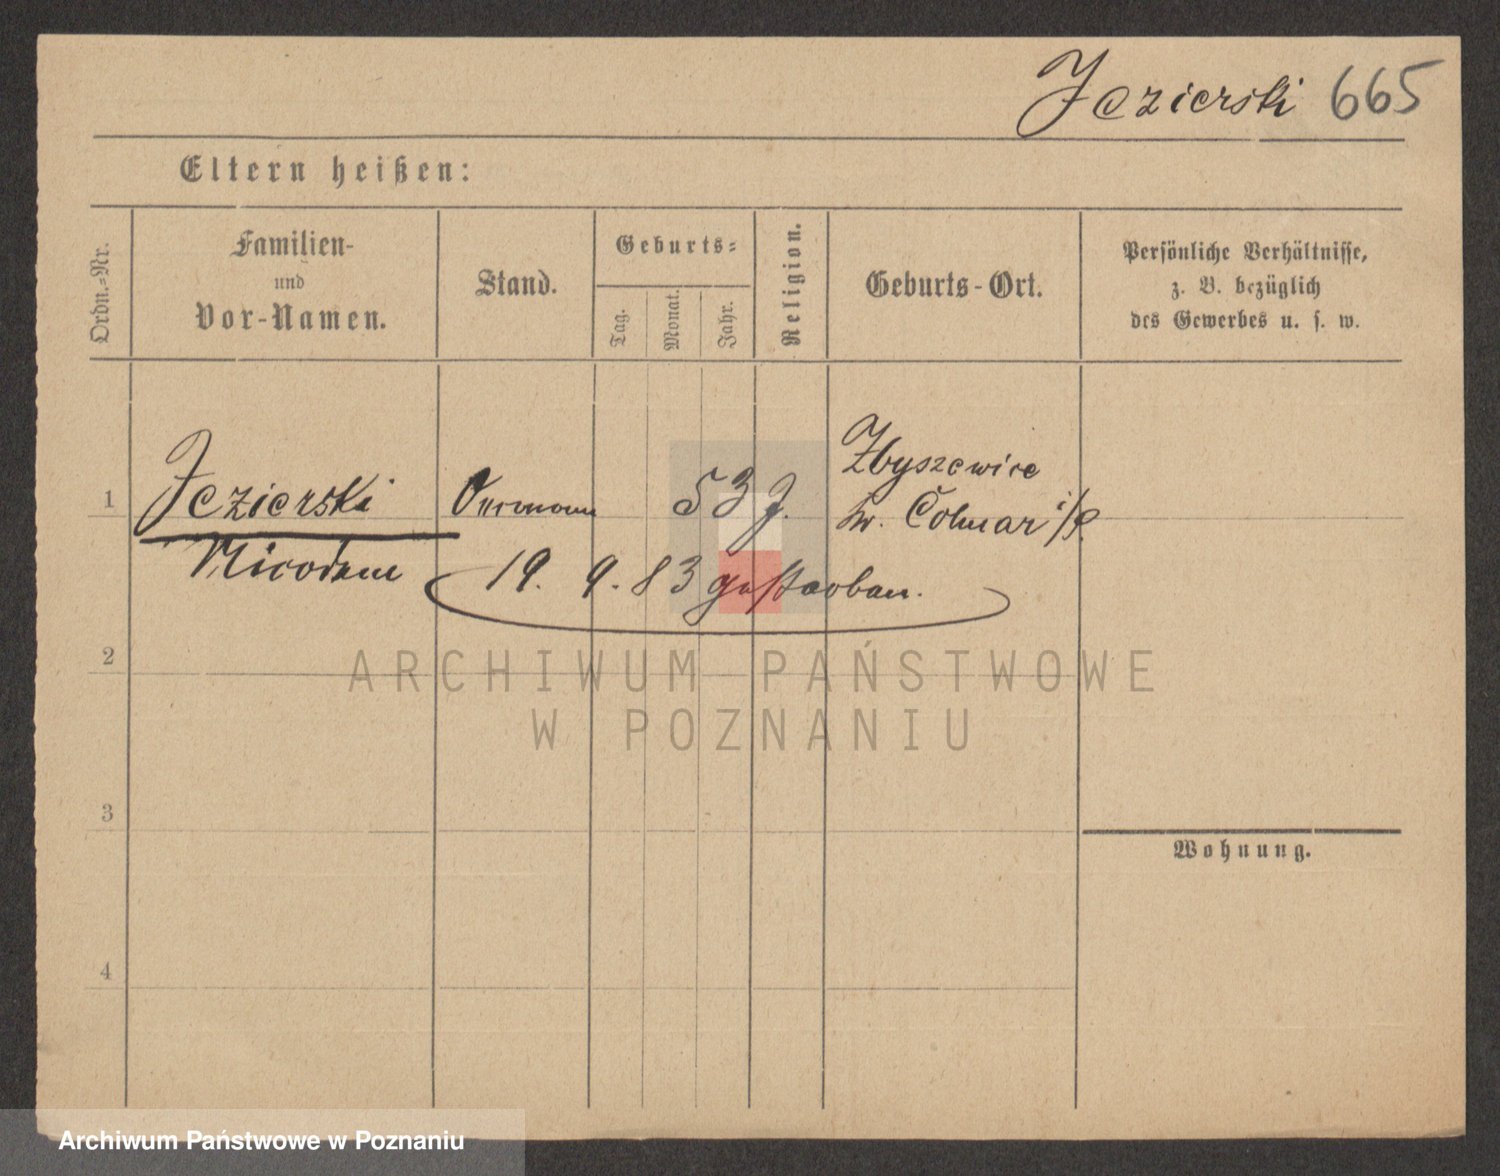 Jezierski 665
Eltern heißen:
Ordn.-Nr.
Familien-
und
Vor-Namen.
Stand.
Geburts-
Tag.
Monat.
Jahr.
Religion.
Geburts-Ort.
Persönliche Verhältnisse,
z. B. bezüglich
des Gewerbes u. s. w.
1
Jezierski
Nicodem
53 J.
Zbyszewice
Kr. Colmar i/P.
19. 9. 83 gestorben.
2
ARCHIWUM PAŃSTWOWE
W POZNANIU
3
Wohnung.
4
Archiwum Państwowe w Poznaniu